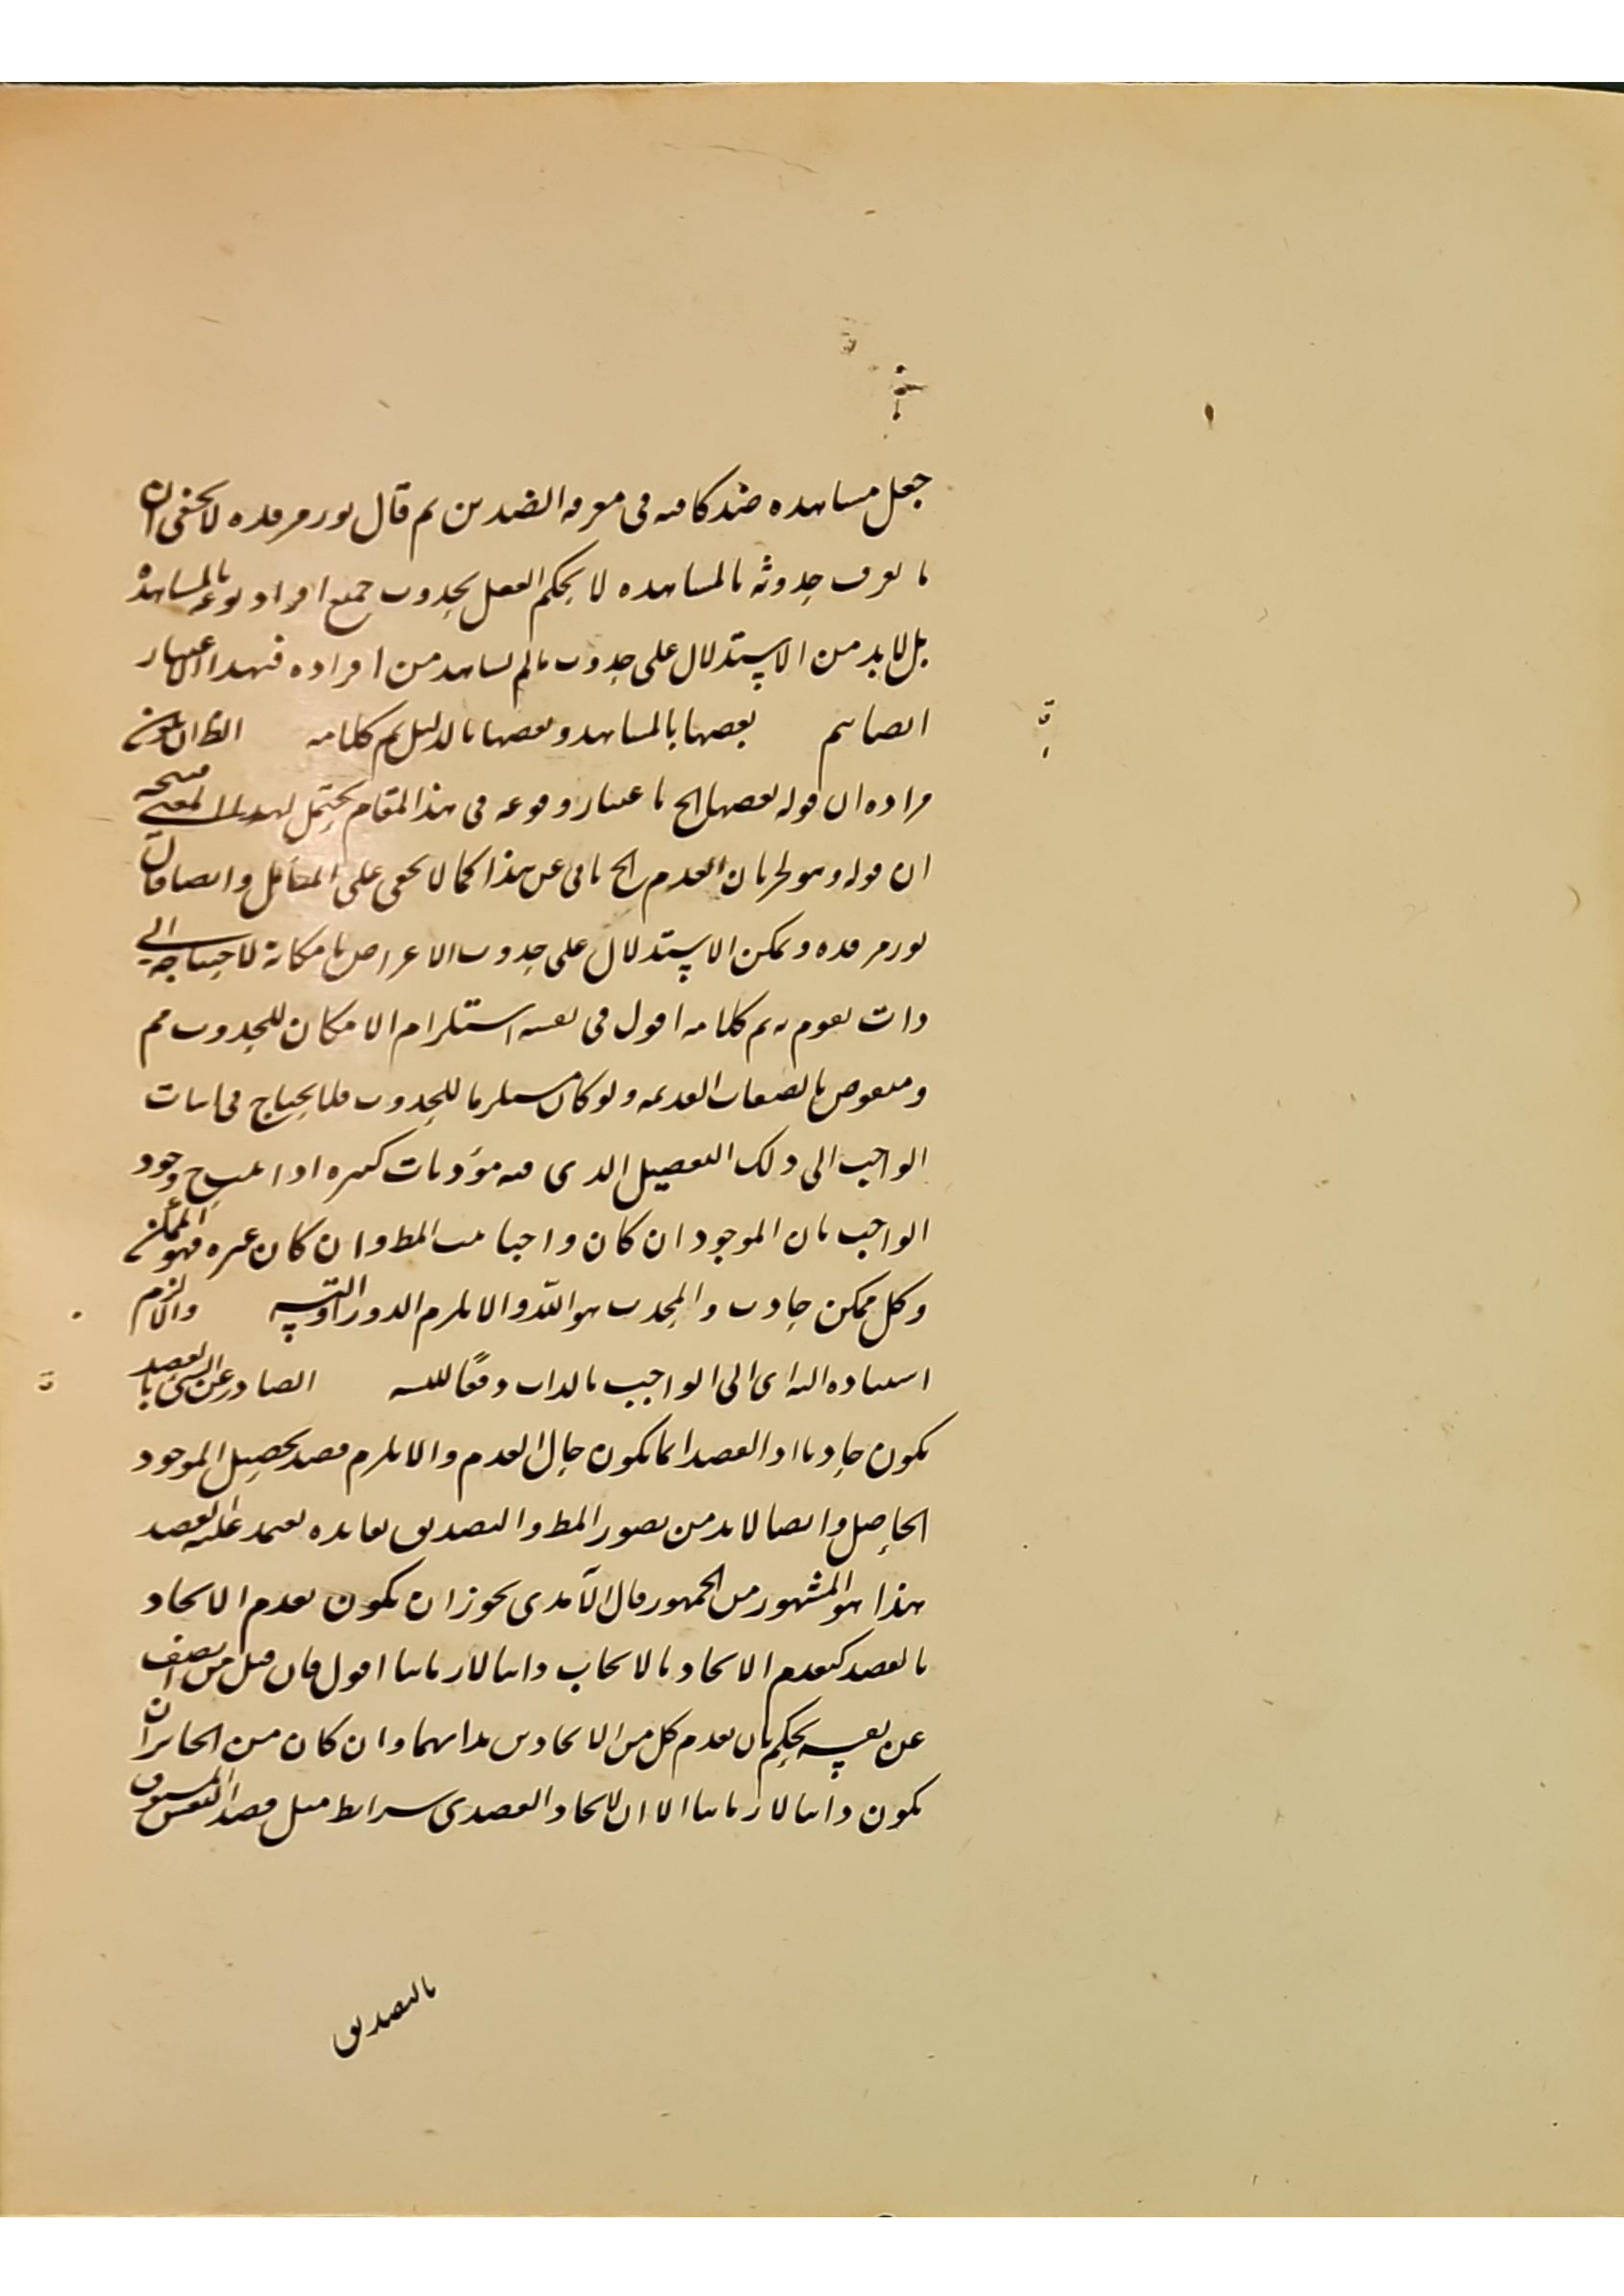 جعل مشاهده ضد كافيه فى معرفه الضدين ثم قال نور مرقده لا يخفى ان
ما يعرف حدوثه بالمشاهده لا يحكم العقل بحدوث جميع افراد نوعه بالمشاهدة
بل لابد من الاستدلال على حدوث مالم يشاهد من افراده فبهذا الاعتبار
ايضا يتم بعضها بالمشاهد وبعضها بالدليل تم كلامه الظ ان يكون
مراده ان قوله بعضها الخ باعتبار وقوعه فى هذا المقام يحتمل لهذا المعنى
ان قوله وهو طريان العدم الخ يابى عن هذا كما لا يخفى على المتامل وايضا قال
نور مرقده ويمكن الاستدلال على حدوث الاعراض بامكانه لاحتياجه الى
ذات يقوم به تم كلامه اقول فى نفسه استلزام الامكان للحدوث مم
ومنقوض بالصفات القديمه ولو كان مستلزما للحدوث فلا يحتاج فى اثبات
الواجب الى ذلك التفصيل الذى فيه مؤنات كثيره اذا وجود
الواجب بان الموجود ان كان واجبا ثبت المط وان كان غيره فهو ممكن
وكل ممكن حادث والمحدث هو الله والا يلزم الدور او التسـ والا لزم
استناده اى الى الواجب بالذات دفعًا للتسـ الصادر عن الشى بالقصد
يكون حادثا اذ القصد انما يكون حال العدم والا يلزم قصد تحصيل الموجود
الحاصل وايضا لابد من تصور المط والتصديق بفايده يعتمد عليه لقصد
هذا هو المشهور من الجمهور قال الآمدى يجوز ان يكون تقدم الايجاد
بالقصد كتقدم الايجاد بالايجاب ذاتيا لا زمانيا اقول فان قيل من انصف
عن نفسه يحكم بان تقدم كل من الايجادين بذاتهما وان كان من الجائز ان
يكون ذاتيا لا زمانيا الا ان للايجاد القصدى شرايط مثل قصد النفس المسبوق
بالتصديق